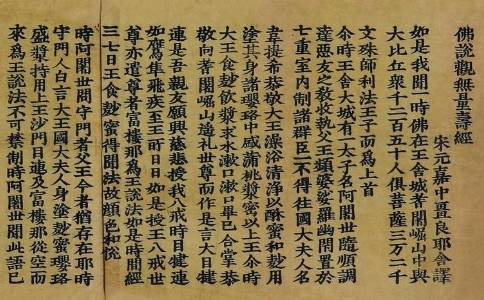 佛說觀無量壽經
宋元嘉中畺良耶舍譯
如是我聞一時佛在王舍城耆闍崛山中與
大比丘衆千二百五十人俱菩薩三万二千
文殊師利法王子而為上首
尒時王舍大城有一太子名阿闍世隨順調
達惡友之教收執父王頻婆娑羅幽閇置於
七重室内制諸群臣一不得往國大夫人名
韋提希恭敬大王澡浴清淨以酥蜜和麨用
塗其身諸瓔珞中盛蒲桃漿密以上王尒時
大王食麨飲漿求水漱口漱口畢已合掌恭
敬向耆闍崛山遙礼世尊而作是言大目犍
連是吾親友願興慈悲授我八戒時目犍連
如鷹隼飛疾至王所日日如是授王八戒世
尊亦遣尊者富樓那為王說法如是時間經
三七日王食麨蜜得聞法故顏色和悅
時阿闍世問守門者父王今者猶存在耶時
守門人白言大王國大夫人身塗麨蜜瓔珞
盛漿持用上王沙門目連及富樓那從空而
來為王說法不可禁制時阿闍世聞此語已